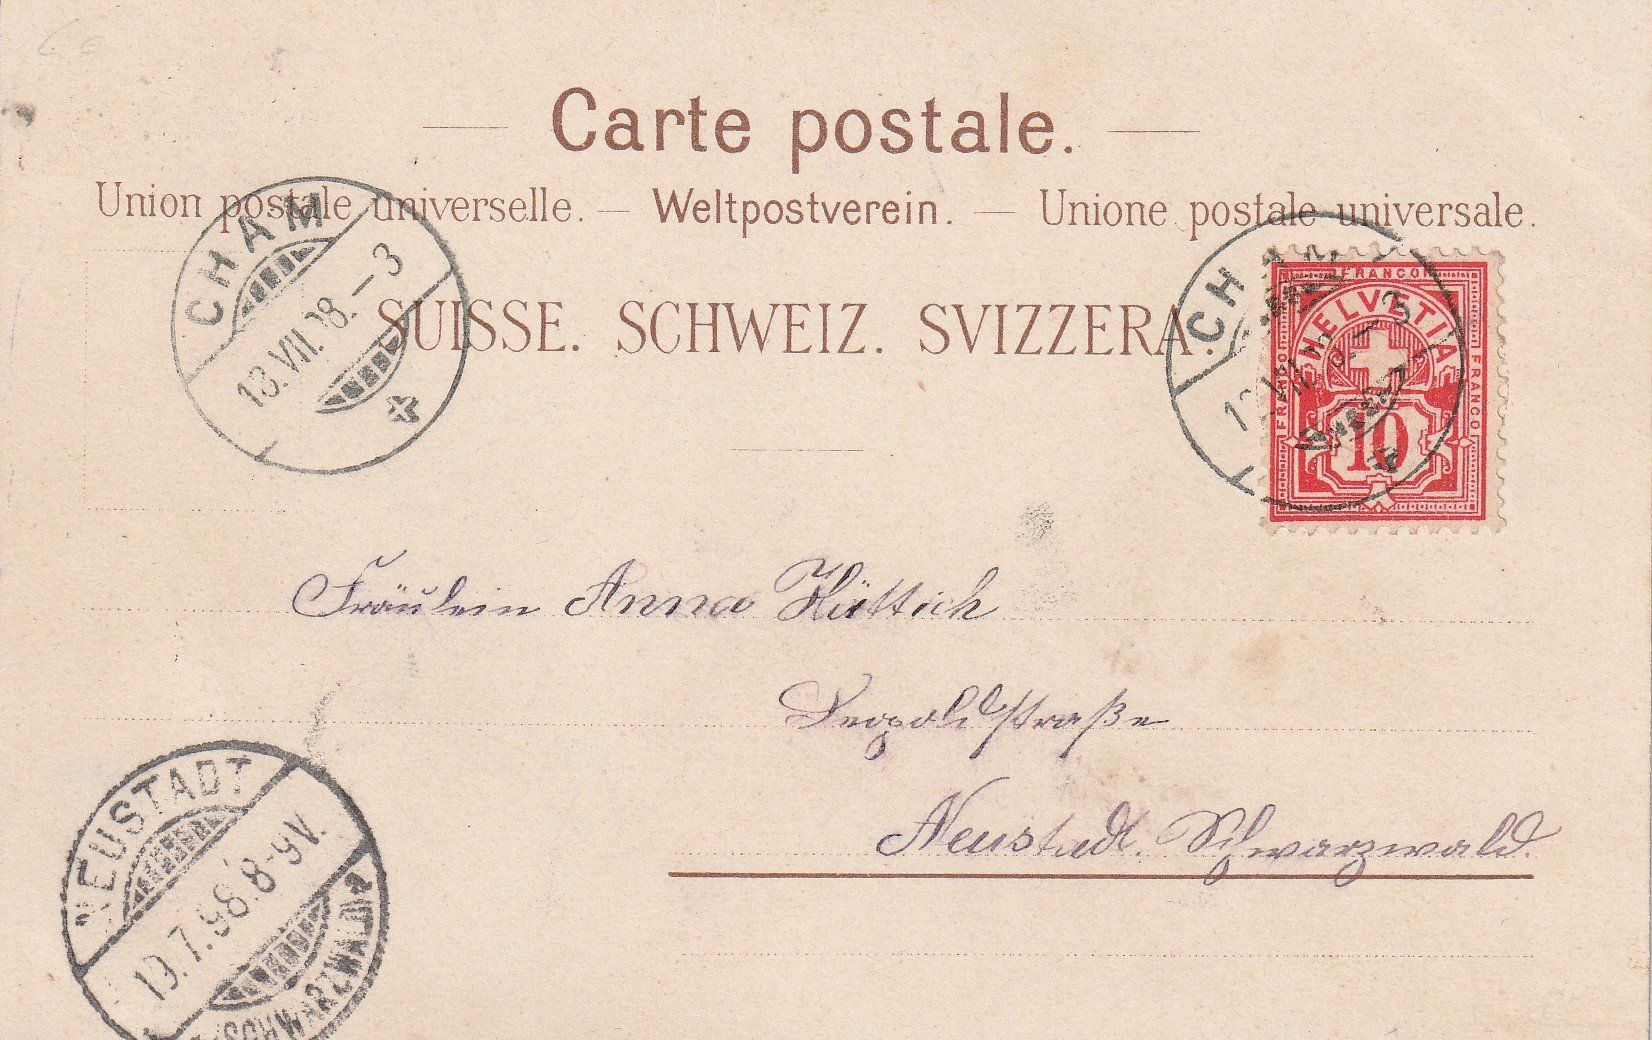 Carte postale.
Union postale universelle. — Weltpostverein. — Unione postale universale.
CHAM
18.VII.98.–3
SUISSE. SCHWEIZ. SVIZZERA.
FRANCO
FRANCO
FRANCO
HELVETIA
10
CH
Fräulein Anna Hüttich
Leopoldstraße
Neustadt. Schwarzwald.
NEUSTADT
19.7.98.8-9V.
(SCHWARZWALD)